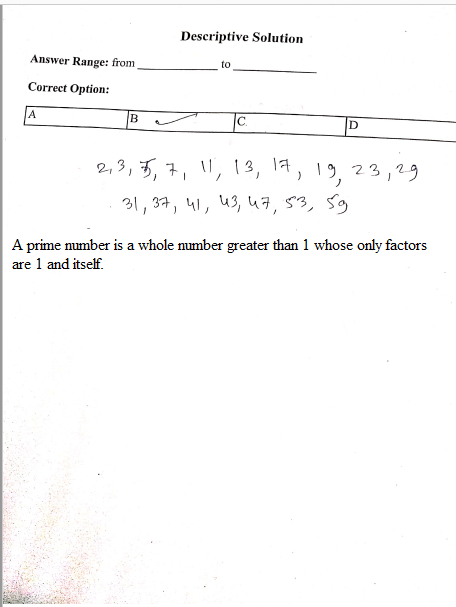 Descriptive Solution
Answer Range: from ____________ to ____________
Correct Option:
A B ✓ C. D
2, 3, 5, 7, 11, 13, 17, 19, 23, 29
31, 37, 41, 43, 47, 53, 59
A prime number is a whole number greater than 1 whose only factors
are 1 and itself.